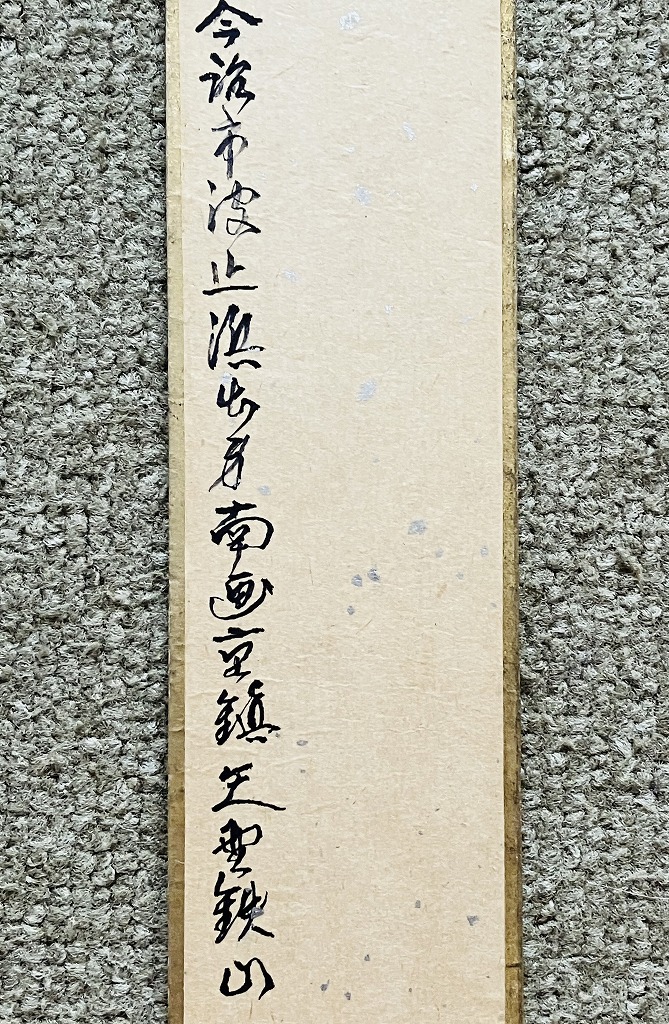 今治市波止浜出身南画重鎮矢野鉄山